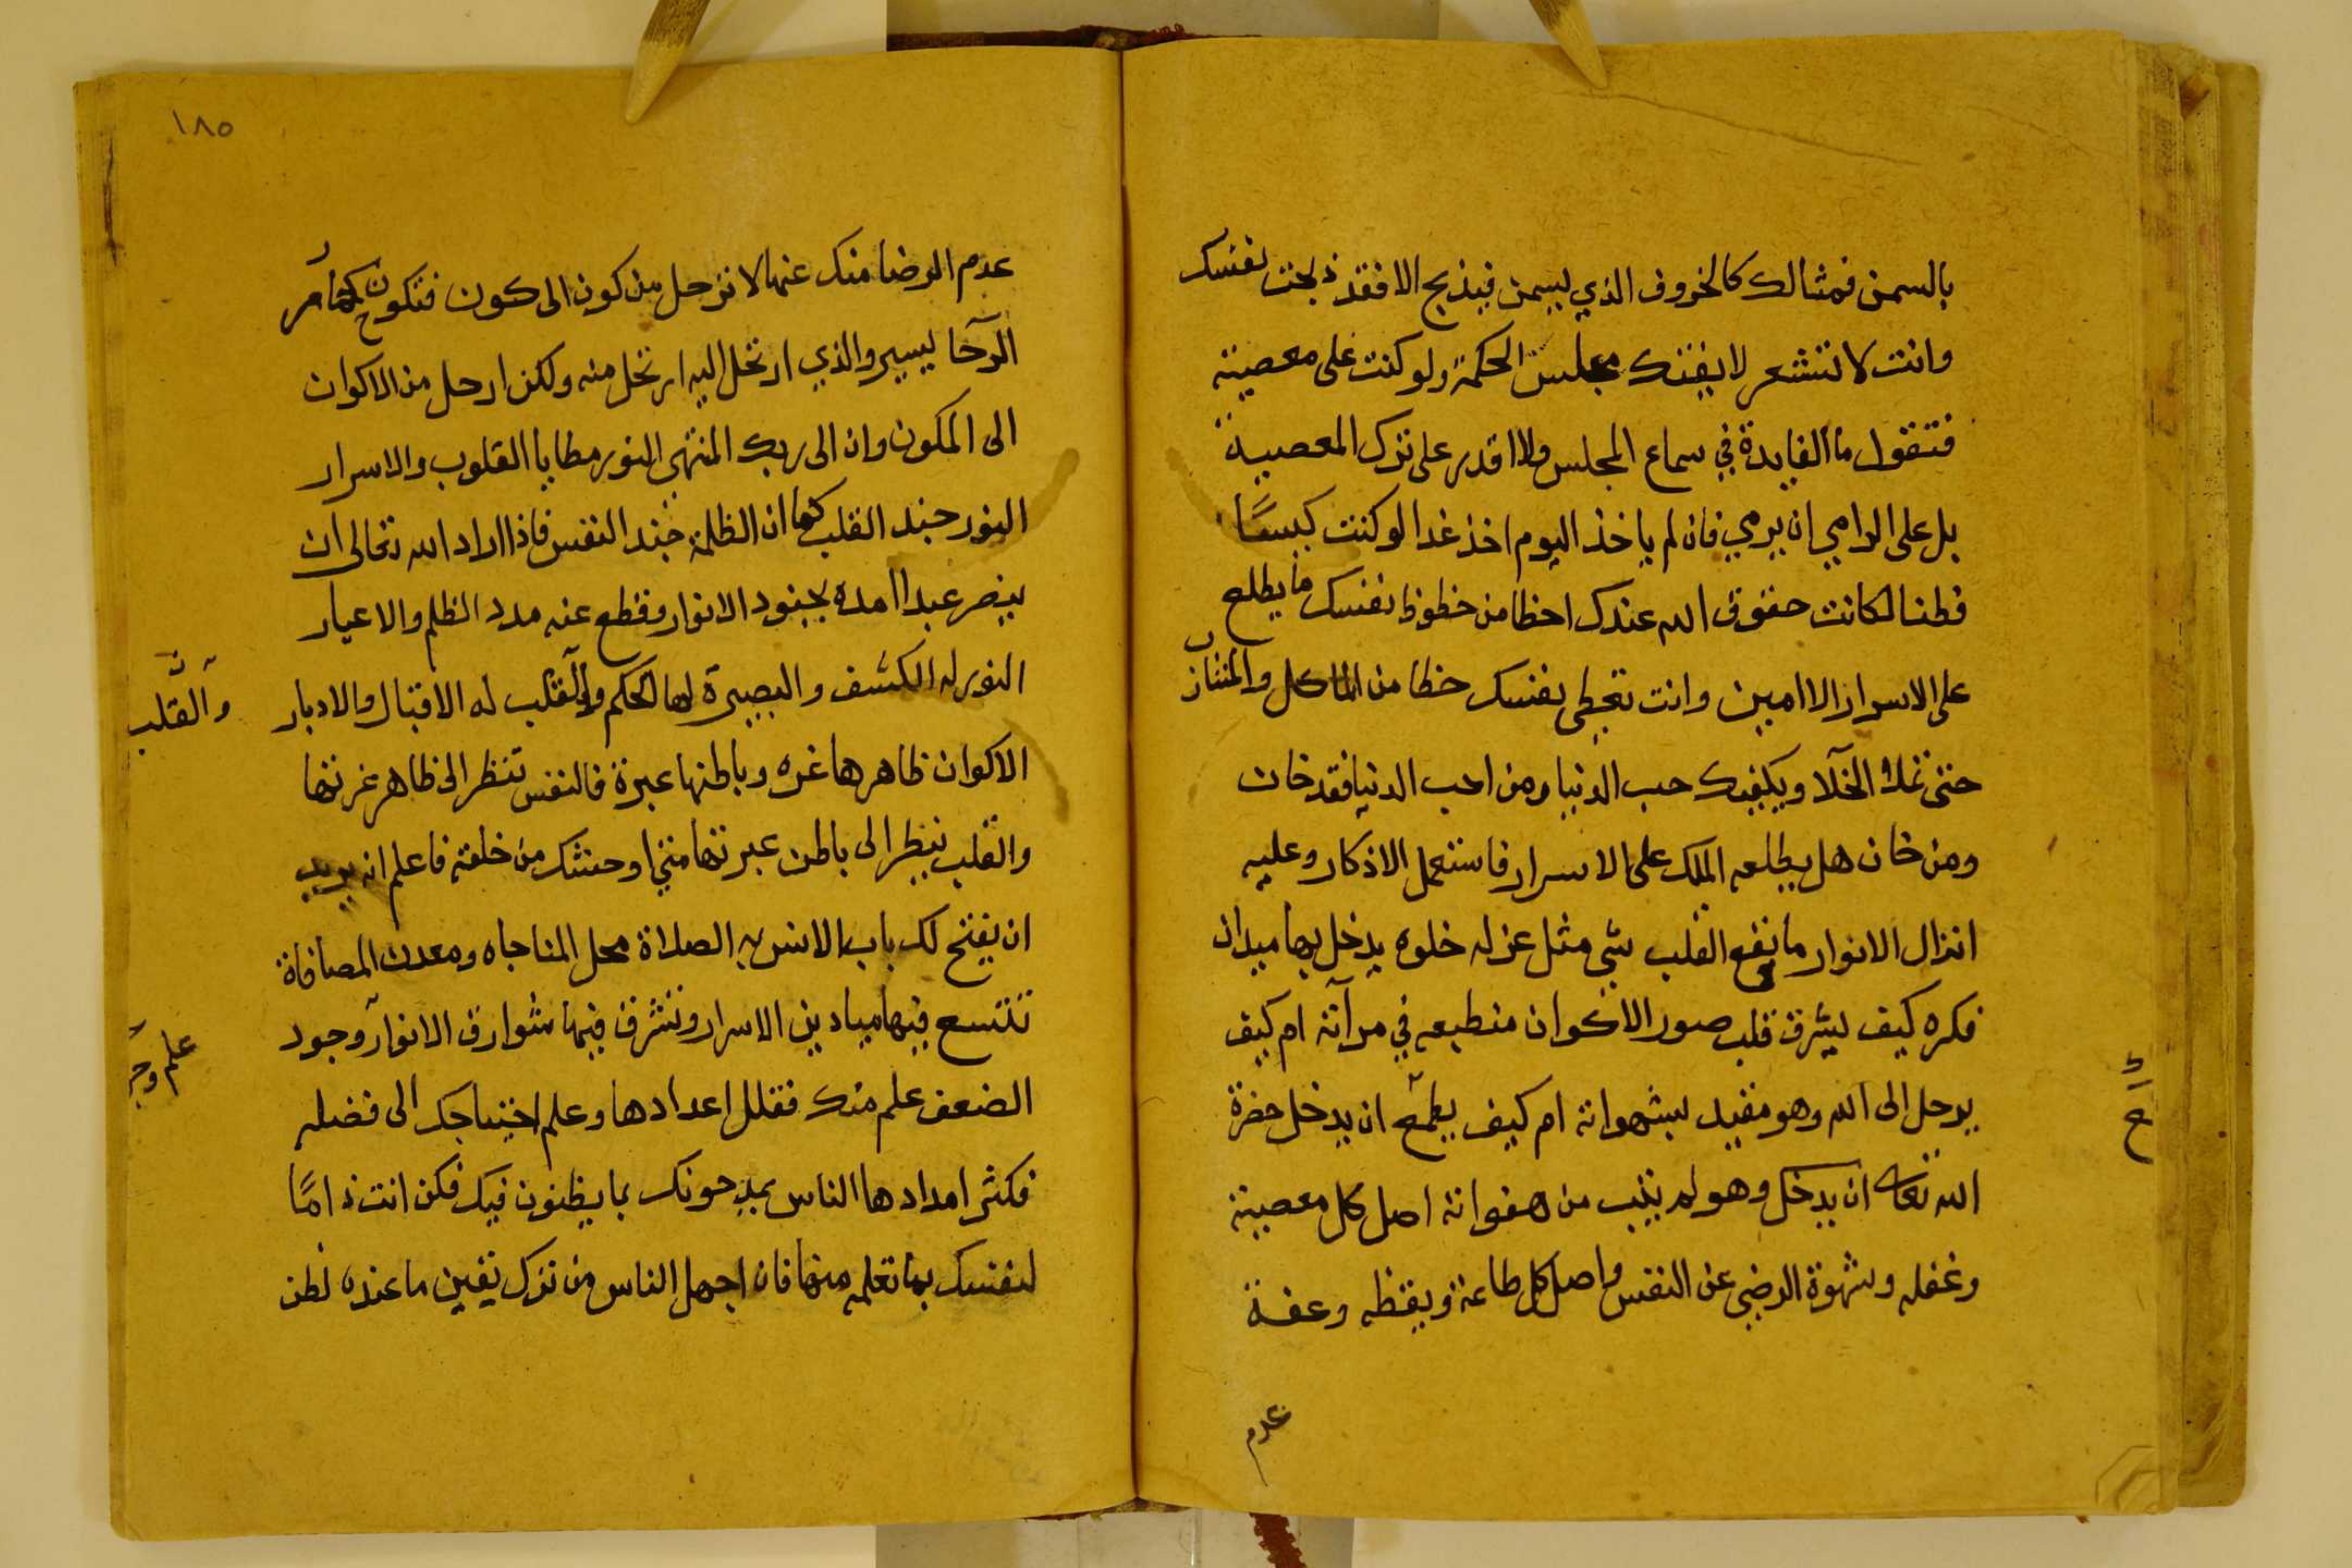 بالسمن فمثالك كالخروف الذي يسمن فيذبح الا فقد ذبحت نفسك
وانت لا تشعر لا يفتك مجلس الحكمة ولو كنت على معصية
فتقول ما الفايدة في سماع المجلس ولا اقدر على ترك المعصية
بل على الرامي ان يرمي فان لم ياخذ اليوم اخذ غدا لو كنت كيسًا
فطنا لكانت حقوق الله عندك احظا من حظوظ نفسك ما يطلع
على الاسرار الا امين وانت تعطى نفسك حظا من الماكل والمشارب
حتى تملا الخلا ويكفيك حب الدنيا ومن احب الدنيا فقد خان
ومن خان هل يطلعه الملك على الاسرار فاستعمل الاذكار وعليه
انزال الانوار ما نفع القلب شي مثل عزله خلوه يدخل بها ميدان
فكره كيف يشرق قلب صور الاكوان منطبعه في مرآته ام كيف
يرحل الى الله وهو مقيد بشهواته ام كيف يطمع ان يدخل حضرة
الله تعالى ان يدخل وهو لم يتب من هفواته اصل كل معصية
وغفله وشهوة الرضى عن النفس واصل كل طاعة ويقظه وعفة
عدم
١٨٥
عدم الرضا منك عنها لا ترحل من كون الى كون فتكون كحمار
الرحا يسير والذي ارتحل اليه ارتحل منه ولكن ارحل من الاكوان
الى المكون وان الى ربك المنتهى النور مطايا القلوب والاسرار
النور جند القلب كما ان الظلمة جند النفس فاذا اراد الله تعالى ان
ينصر عبدا امده بجنود الانوار وقطع عنه مدد الظلم والاغيار
النور له الكشف والبصيرة لها الحكم والقلب له الاقبال والادبار
والقلب
الاكوان ظاهرها غره وباطنها عبرة فالنفس تنظر الى ظاهر غرتها
والقلب ينظر الى باطن عبرتها متى اوحشك من خلقه فاعلم انه يريد
ان يفتح لك باب الانس به الصلاة محل المناجاه ومعدن المصافاة
تتسع فيها ميادين الاسرار وتشرق فيها شوارق الانوار وجود
علم وج
الضعف علم منك فقلل اعدادها وعلم احتياجك الى فضله
فكثر امدادها الناس يمدحونك بما يظنون فيك فكن انت ذامًا
لنفسك بما تعلمه منها فان اجهل الناس من ترك يقين ما عنده لظن